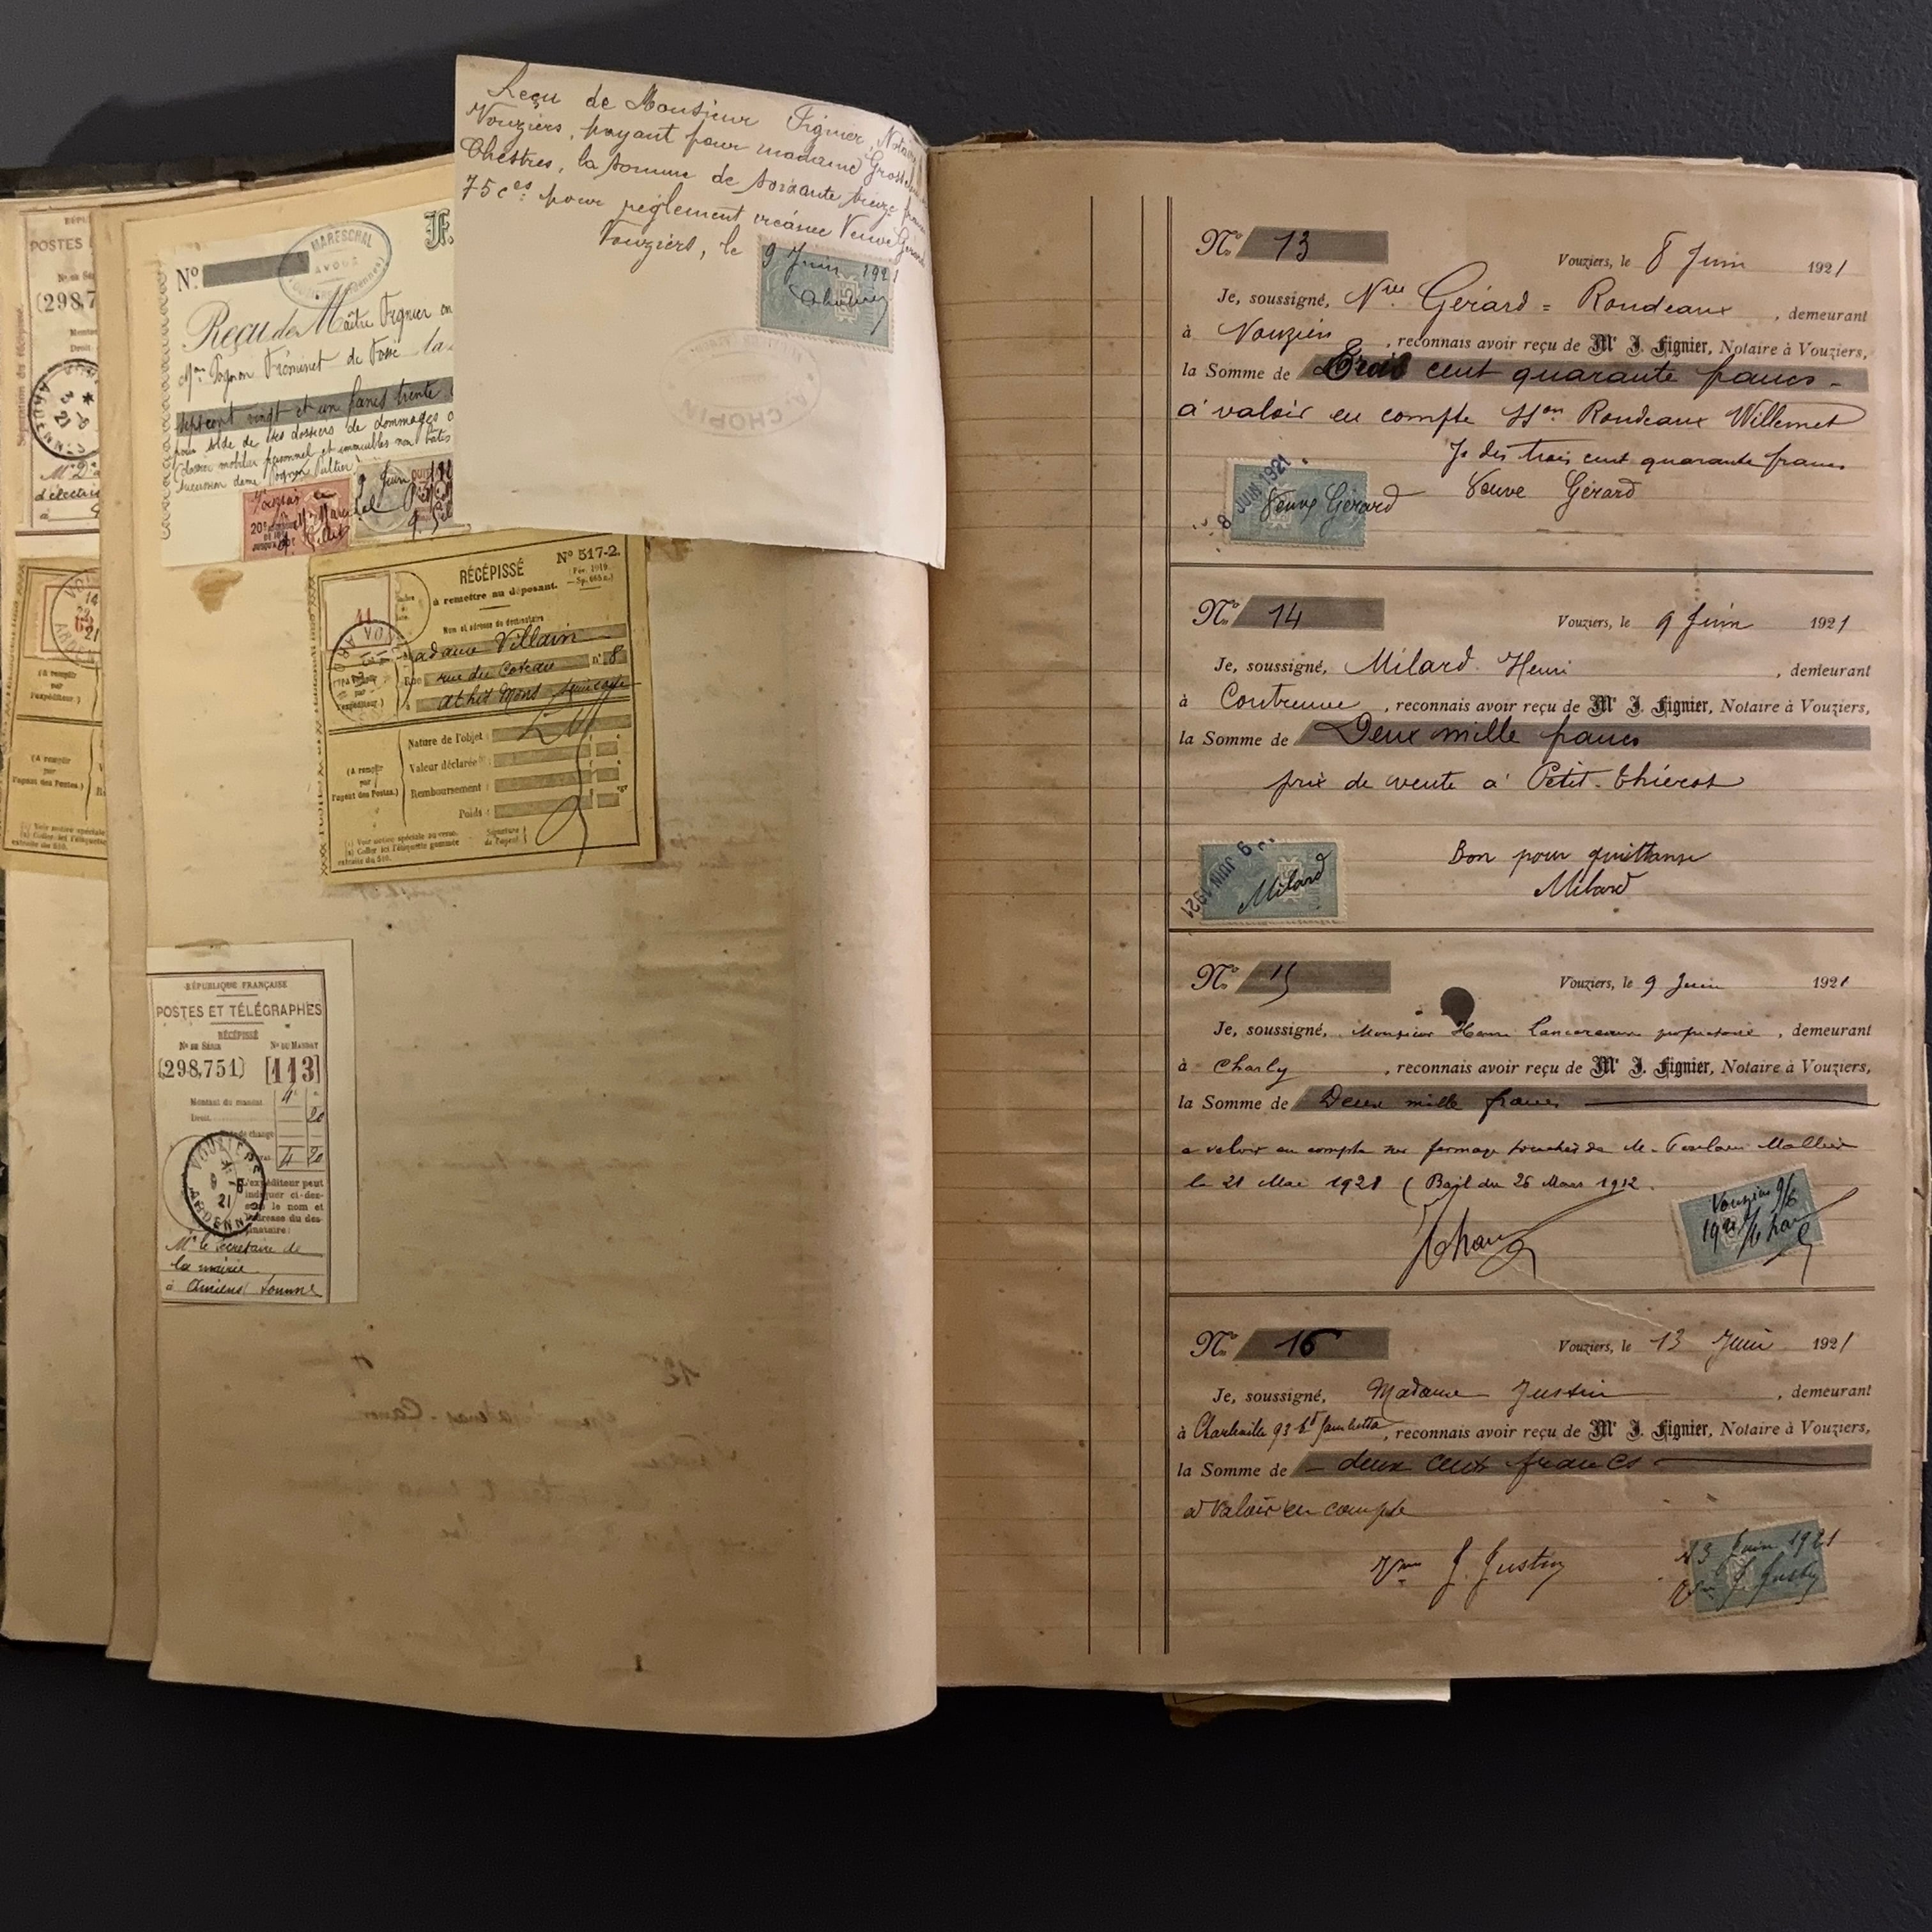 Reçu de Monsieur Fignier, Notaire
Vouziers, payant pour madame
Chestres, la somme de soixante treize francs
75 ces pour règlement créance Veuve Gérard
Vouziers, le
9 Juin 1921
A. CHOPIN
MARESCHAL
AVOUÉ
No
Reçu de Maître Fignier
Mme Pognon Fréminet de Fosse la
sept cent vingt et un francs trente
pour solde de ses dossiers de dommages
dossier mobilier personnel et immeubles non bâtis
succession dame Pognon
9 Juin
POSTES
(298,7
RÉCÉPISSÉ
No 517-2.
(Fév. 1919.
à remettre au déposant.
Nom et adresse du destinataire
Madame Villain
Rue rue du Coteau no 8
à Athis Mons Seine et Oise
(A remplir
par
l'expéditeur.)
Nature de l'objet :
Valeur déclarée :
Remboursement :
Poids :
(A remplir
par
l'agent des Postes.)
(1) Voir notice spéciale au verso.
(2) Coller ici l'étiquette gommée
extraite du 510.
Signature
de l'agent
RÉPUBLIQUE FRANÇAISE
POSTES ET TÉLÉGRAPHES
RÉCÉPISSÉ
No DE SÉRIE No DU MANDAT
(298,751) [113]
Montant du mandat 4
Droit 20
4 20
VOUZIERS
ARDENNES
L'expéditeur peut
indiquer ci-des-
sous le nom et
l'adresse du des-
tinataire :
Mr le Secrétaire de
la mairie
à Amiens Somme
No 13
Vouziers, le 8 Juin 1921
Je, soussigné, Vve Gérard = Rondeaux, demeurant
à Vouziers, reconnais avoir reçu de Me J. Fignier, Notaire à Vouziers,
la Somme de Trois cent quarante francs
à valoir en compte Son Rondeaux Willemet
Je dis trois cent quarante francs
Veuve Gérard
8 JUIN 1921
Veuve Gérard
No 14
Vouziers, le 9 Juin 1921
Je, soussigné, Milard Henri, demeurant
à Contreuve, reconnais avoir reçu de Me J. Fignier, Notaire à Vouziers,
la Somme de Deux mille francs
prix de vente à Petit-Thiérot
Bon pour quittanse
Milard
9 JUIN 1921
Milard
No 15
Vouziers, le 9 Juin 1921
Je, soussigné, Monsieur Henri Lancereaux propriétaire, demeurant
à Charly, reconnais avoir reçu de Me J. Fignier, Notaire à Vouziers,
la Somme de Deux mille francs
a valoir en compte sur fermage touchés de M.
le 21 Mai 1921 (Bail du 26 Mars 1912.
Vouziers 9/6
1921
No 16
Vouziers, le 13 Juin 1921
Je, soussigné, Madame Justin, demeurant
à Charleville 93 bd Gambetta, reconnais avoir reçu de Me J. Fignier, Notaire à Vouziers,
la Somme de deux cents francs
a valoir en compte
Vve J. Justin
13 Juin 1921
Vve J. Justin